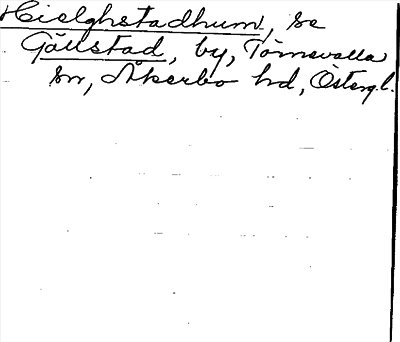 Hielghstadhum, se
Gällstad, by, Törnevalla
sn, Åkerbo hd, Österg.l.